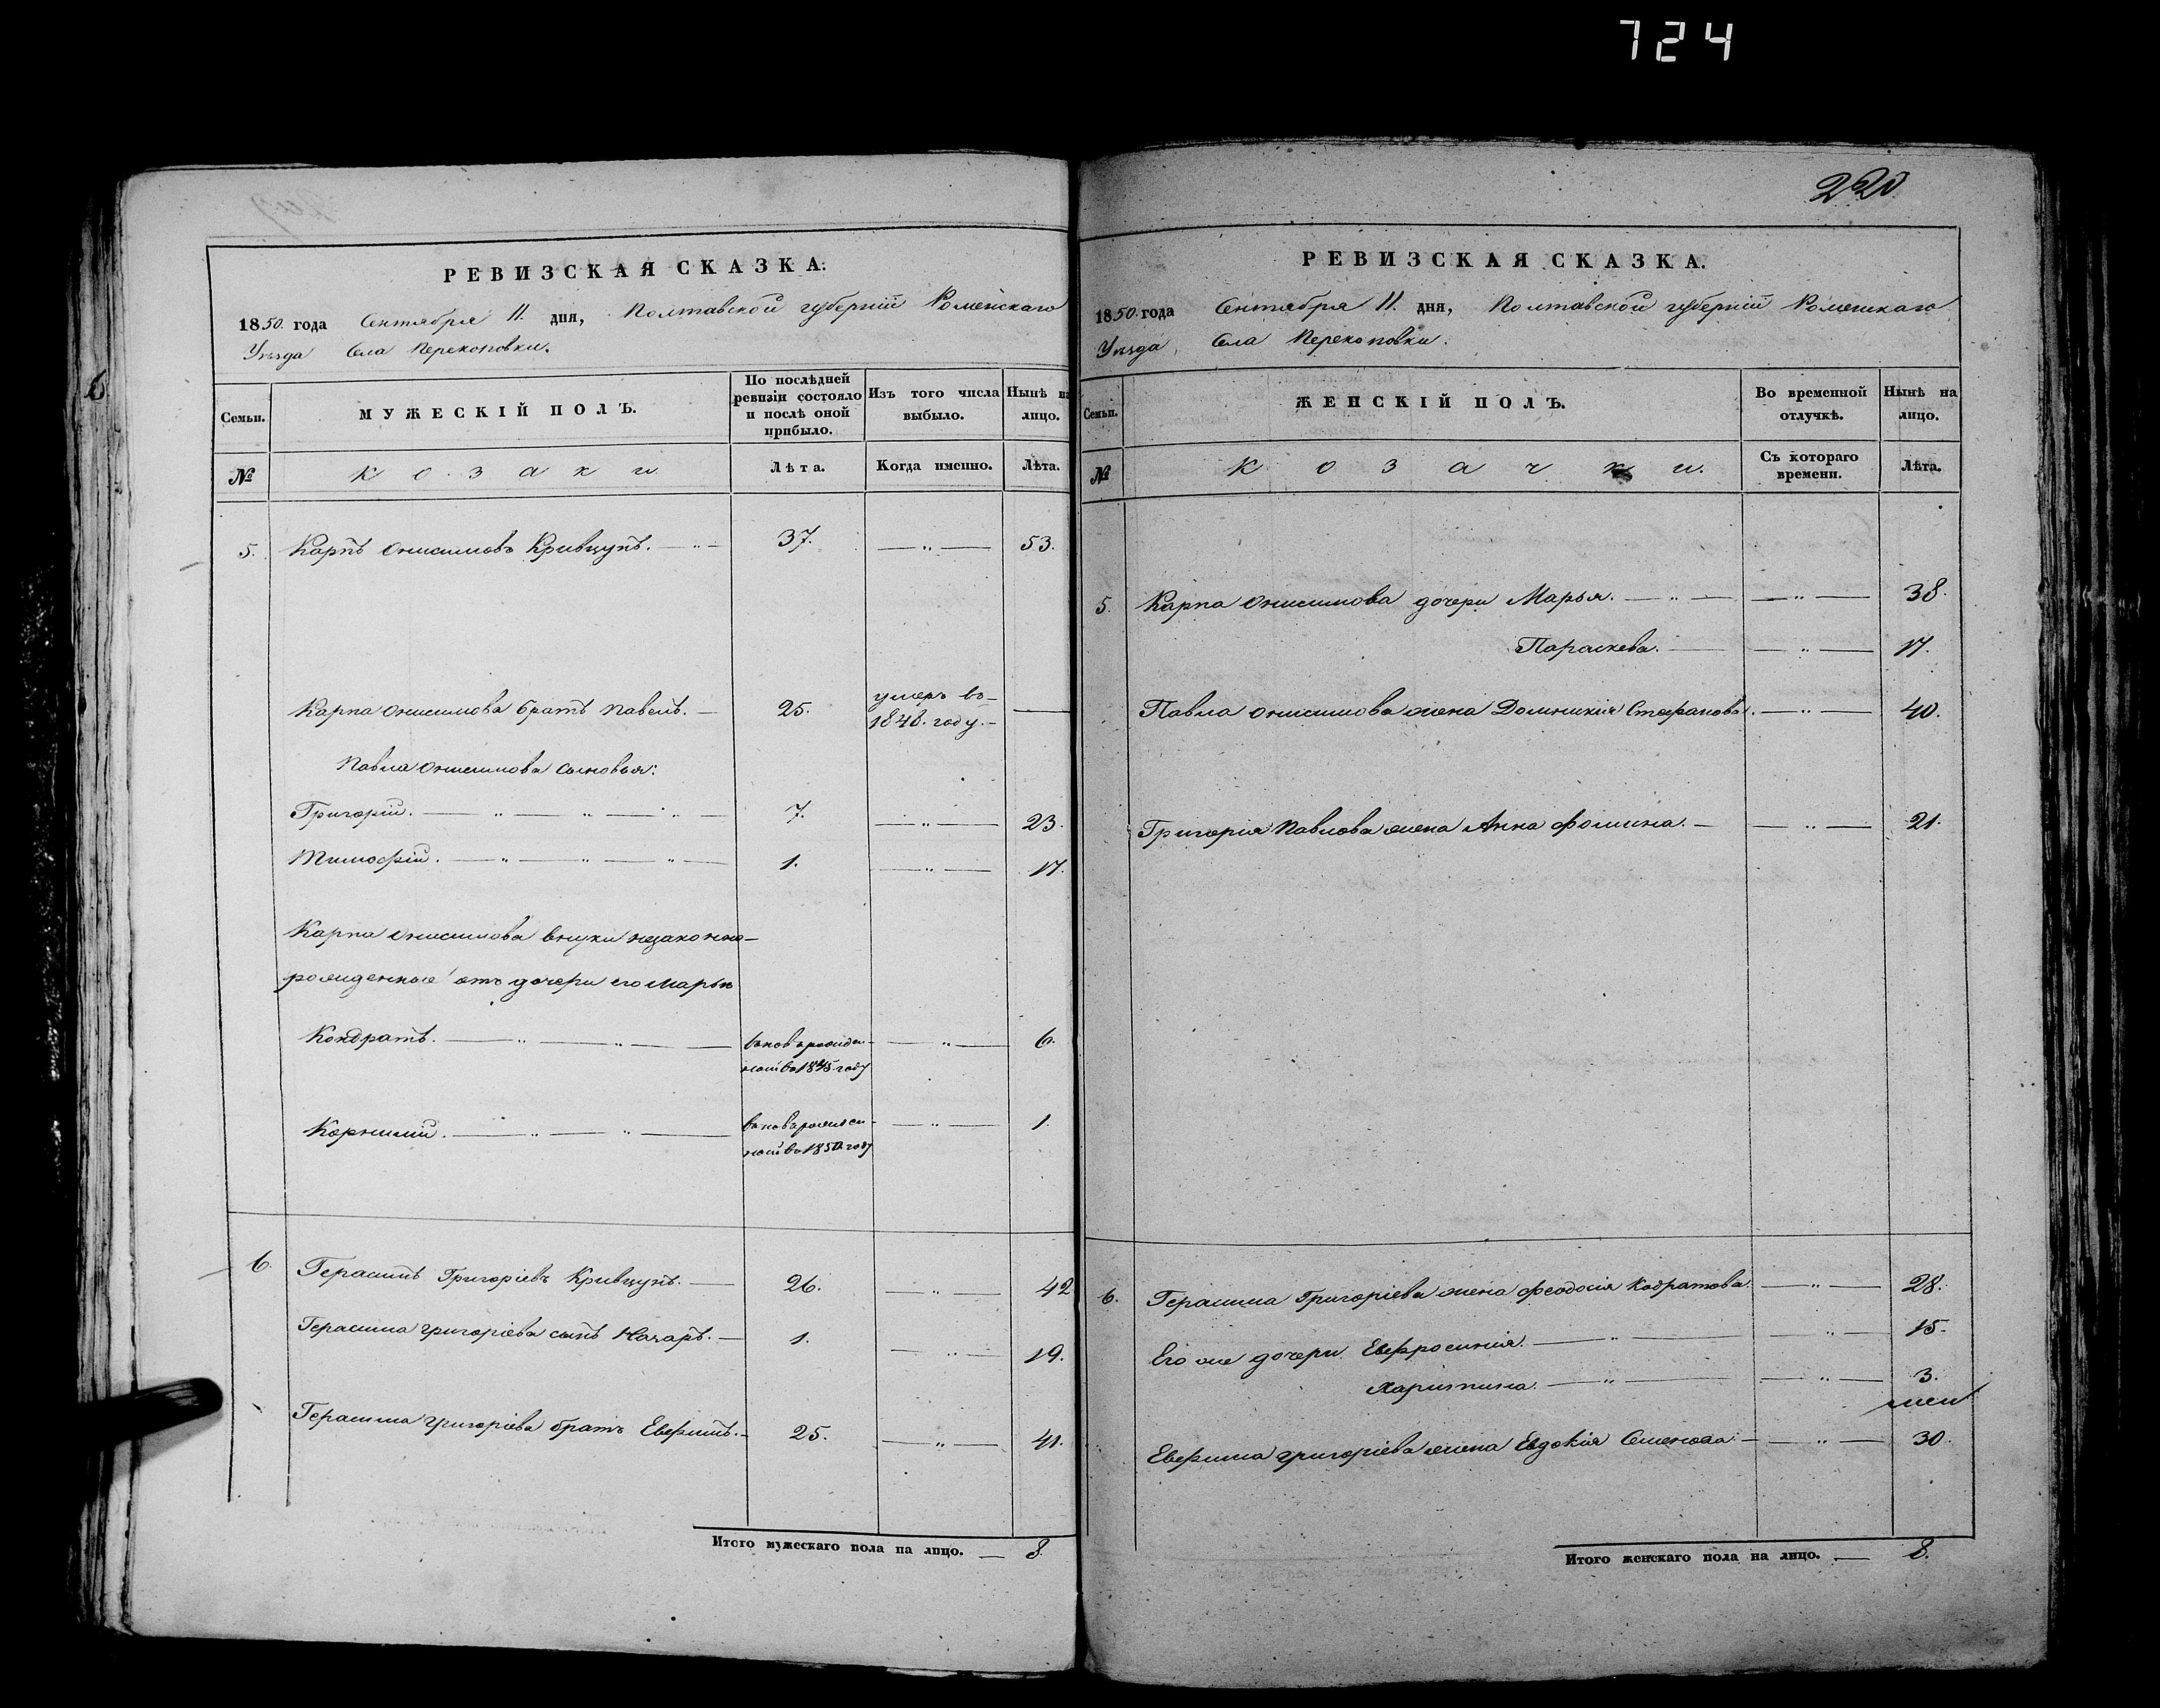 724
220
РЕВИЗСКАЯ СКАЗКА.
1850. года Сентября 11. дня, Полтавской губерніи Роменскаго
Уѣзда Села Перекоповки.
Семьи.
МУЖЕСКІЙ ПОЛЪ.
По послѣдней ревизіи состояло и послѣ оной прибыло.
Изъ того числа выбыло.
Нынѣ на лицо.
№
Козаки
Лѣта.
Когда именно.
Лѣта.
5. Карпъ Онисимовъ Кривцунъ. 37. 53.
Карпа Онисимова братъ Павелъ. 25. умеръ въ 1848. году.
Павла Онисимова сыновья:
Григорій. 7. 23.
Тимофій. 1. 17.
Карпа Онисимова внуки незаконно-
рожденные отъ дочери его Марьи
Кондратъ. 6.
Корнилій. 1
6. Герасимъ Григоріевъ Кривцунъ. 26. 42
Герасима Григоріева сынъ Назаръ. 1. 19.
Герасима Григоріева братъ Евфимъ. 25. 41.
Итого мужескаго пола на лицо. 8.
РЕВИЗСКАЯ СКАЗКА.
1850. года Сентября 11. дня, Полтавской губерніи Роменскаго
Уѣзда Села Перекоповки.
Семьи.
ЖЕНСКІЙ ПОЛЪ.
Во временной отлучкѣ.
Нынѣ на лицо.
№
Козачки.
Съ котораго времени.
Лѣта.
5. Карпа Онисимова дочери Марья. 38.
Параскева. 17.
Павла Онисимова жена Домникія Стефанова. 40.
Григорія Павлова жена Анна Фомина. 21.
6. Герасима Григоріева жена Феодосія Кодратова. 28.
Его же дочери Евфросинія. 15.
Харитина. 3.
Евфима Григоріева жена Евдокія Семенова 30.
Итого женскаго пола на лицо. 8.